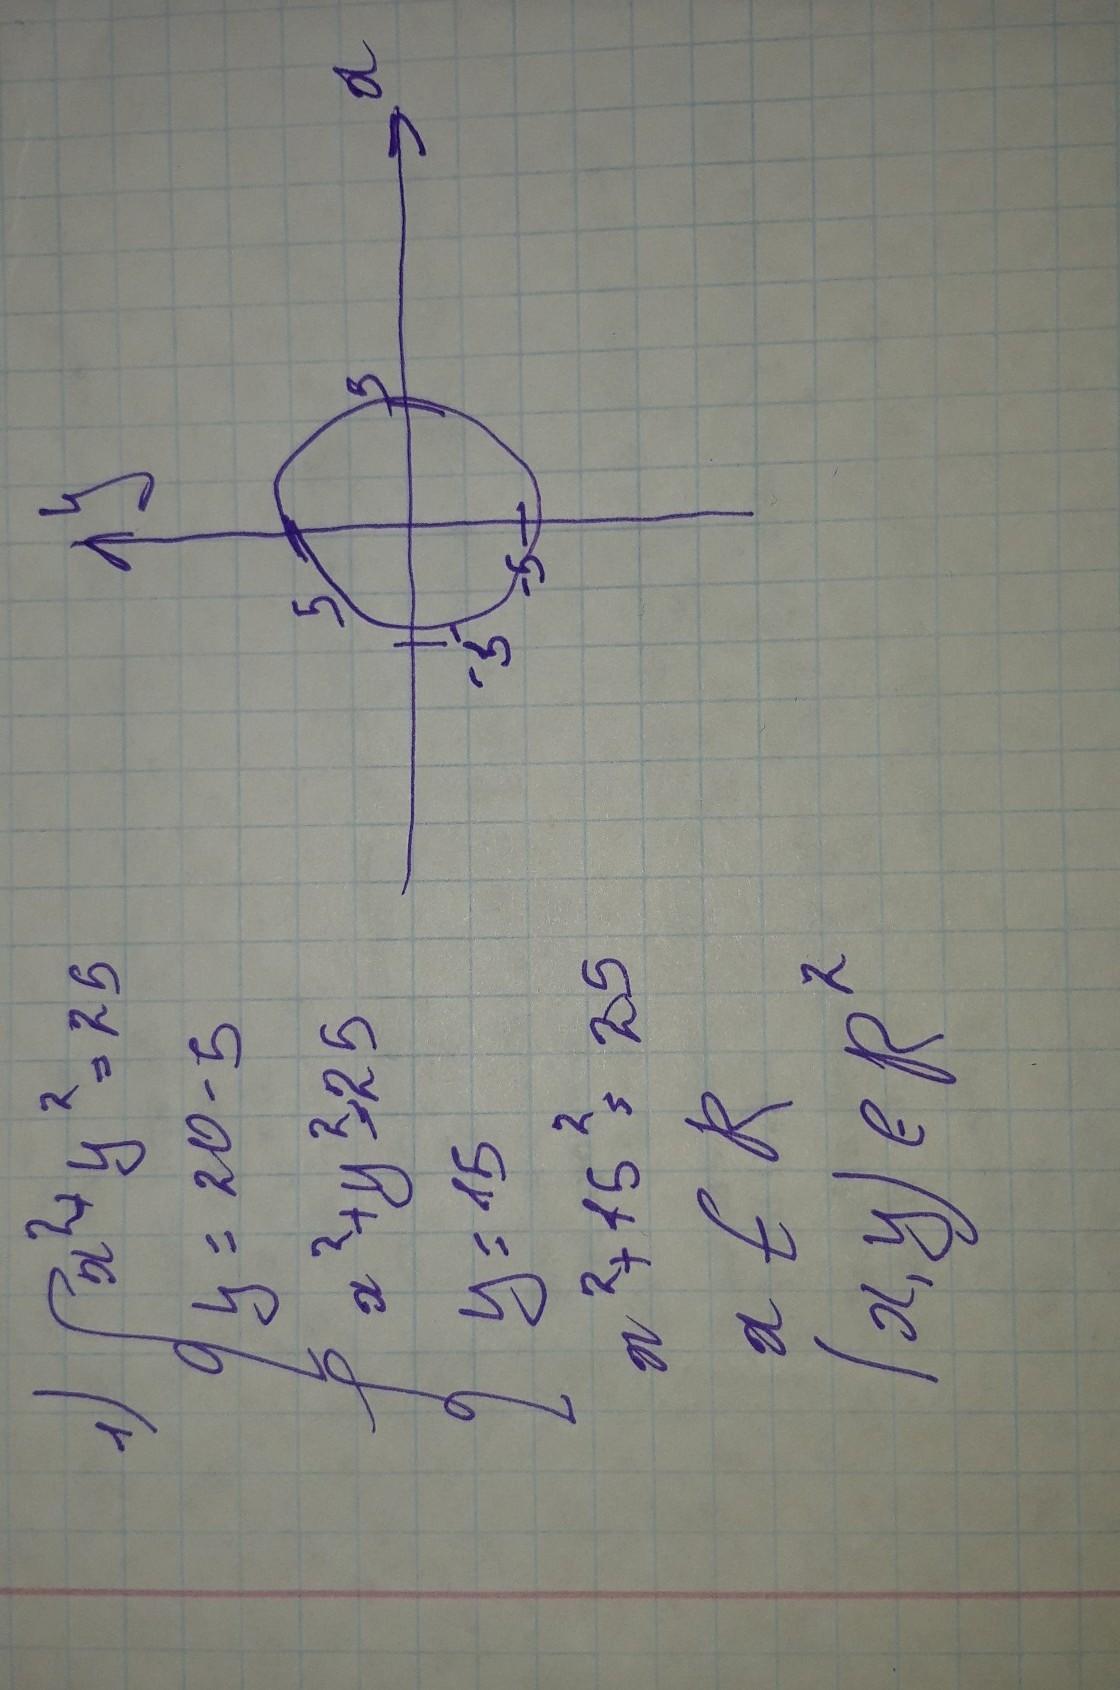 1) { x² + y² = 25
y = 20 - 5
{ x² + y² = 25
y = 15
x² + 15² = 25
x ∈ R
(x, y) ∈ R²
y
x
5
5
-5
-5